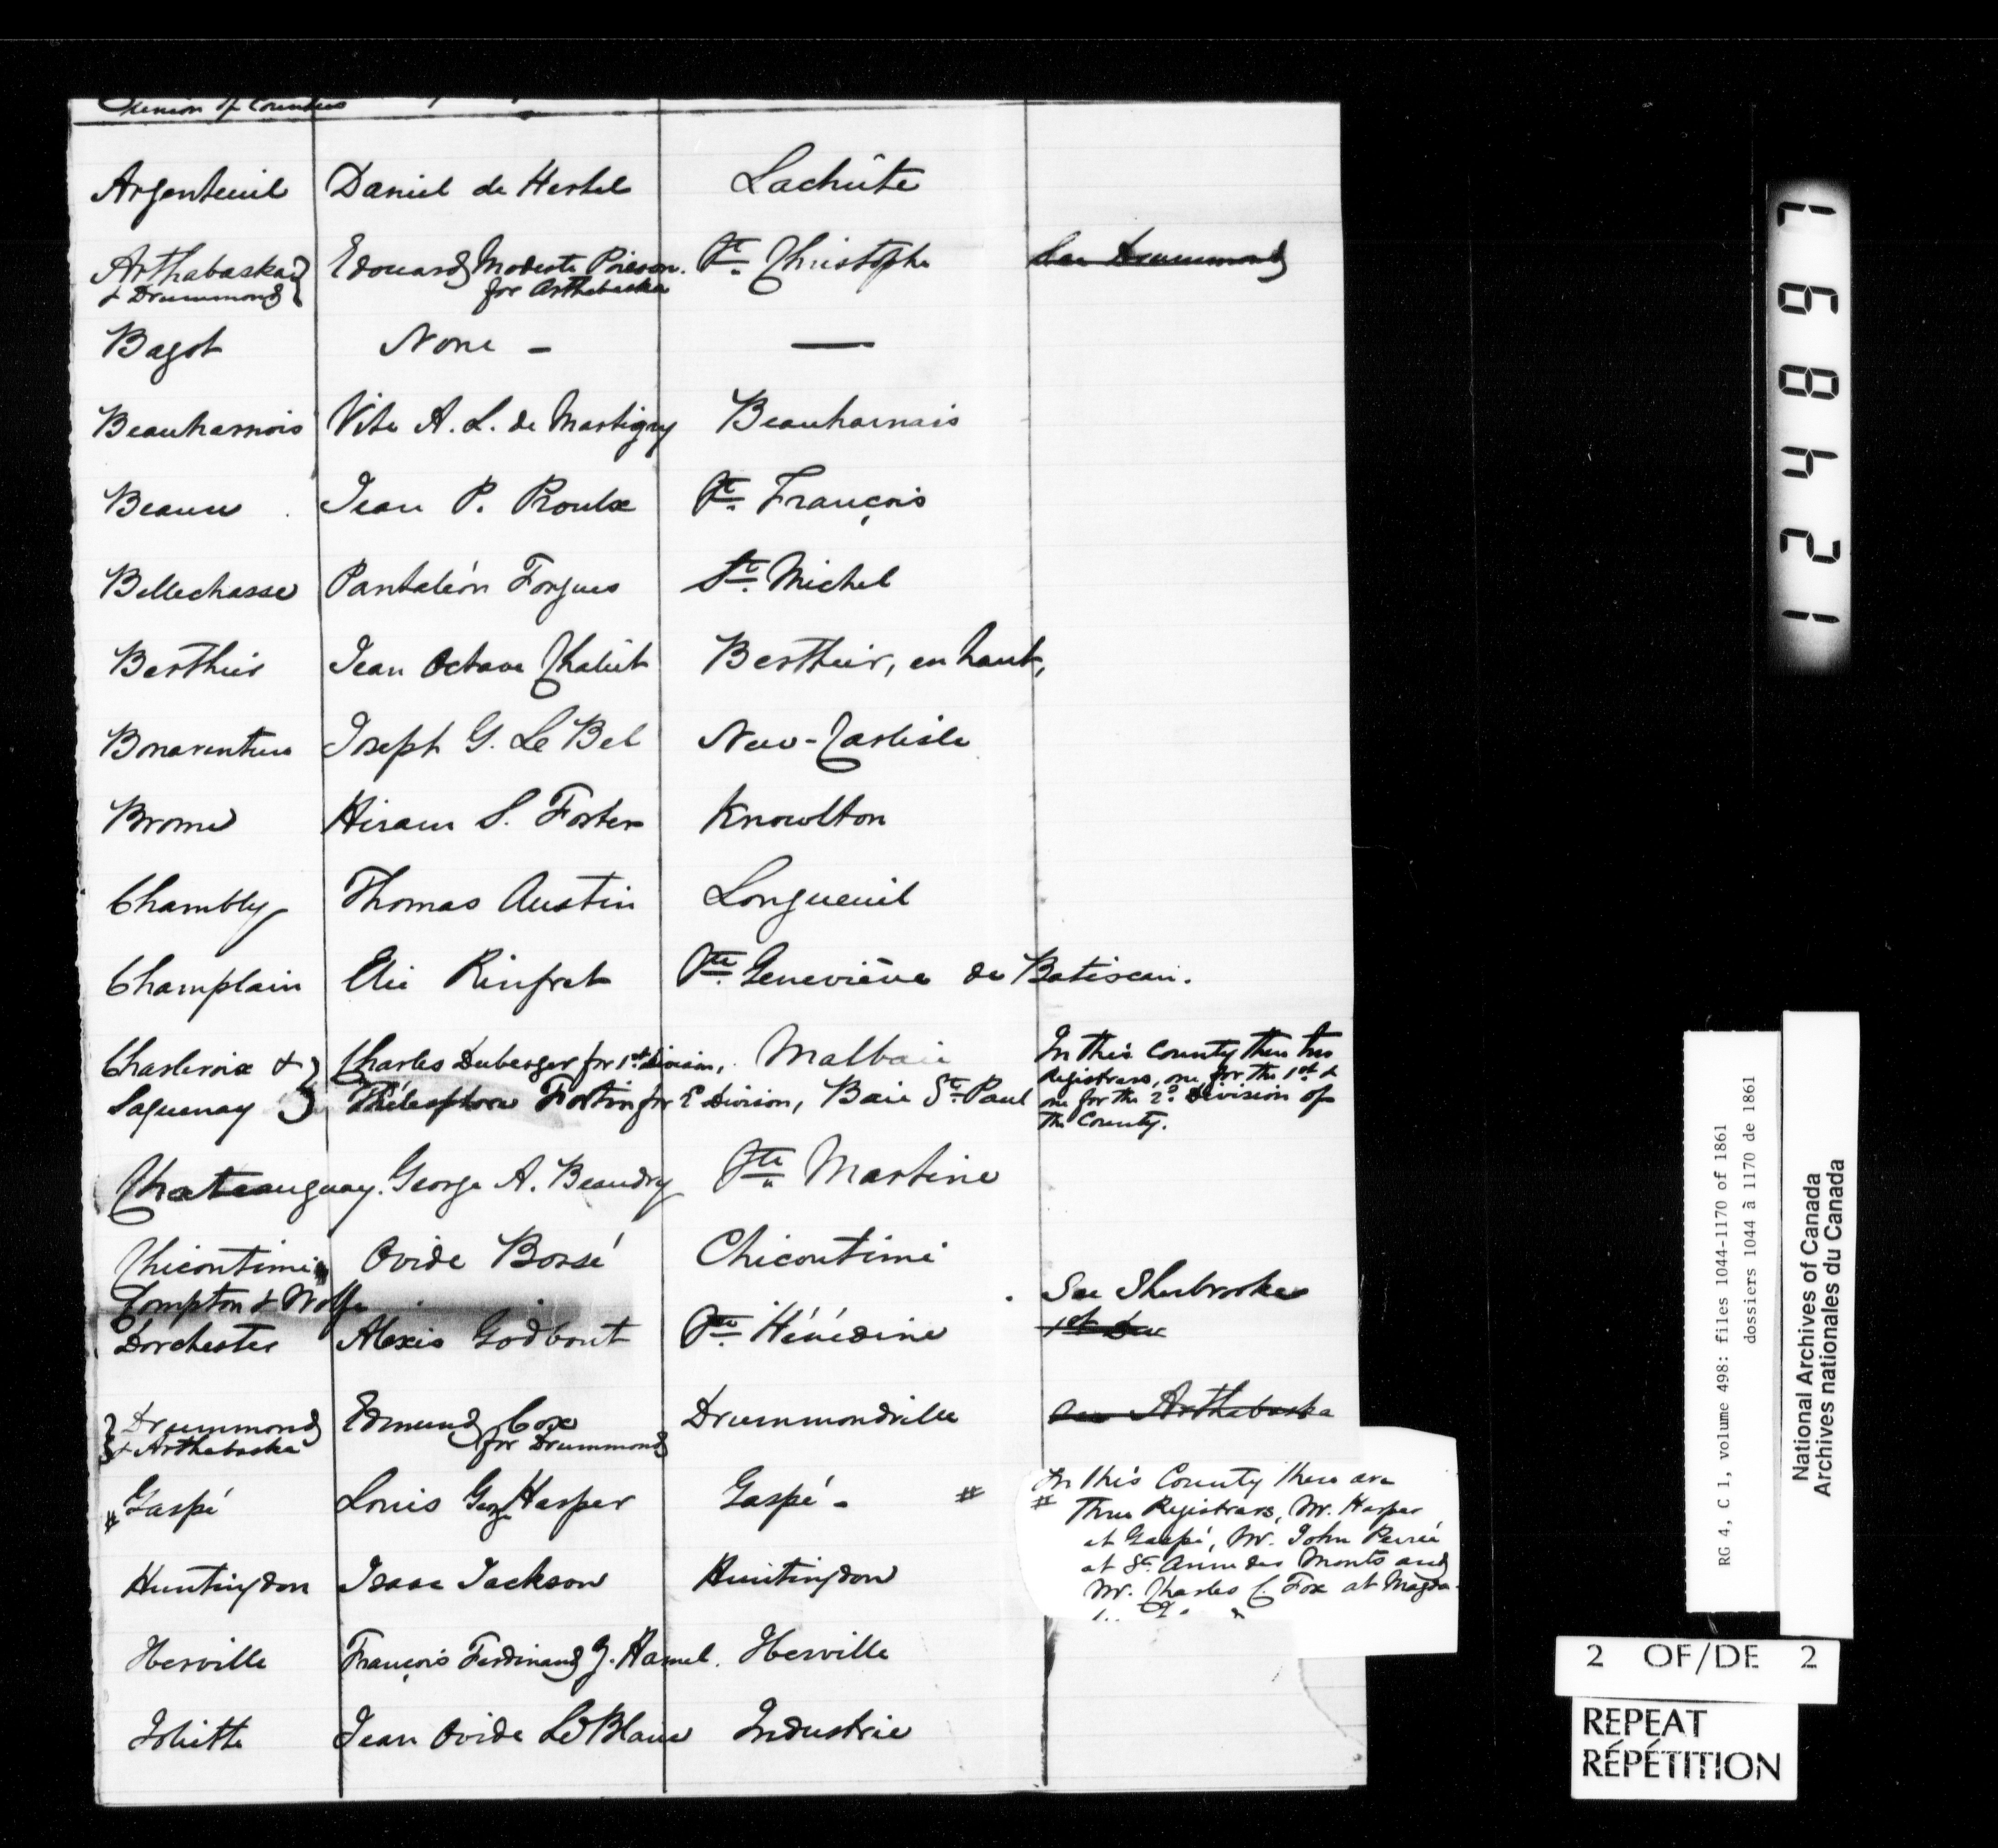 union of Counties
Argenteuil Daniel de Hertel Lachûte
Arthabaska Edouard Modeste Poisson. St. Christophe See Drummond
& Drummond for Arthabaska
Bagot None - —
Beauharnois Vite A. L. de Martigny Beauharnais
Beauce Jean P. Proulx St. François
Bellechasse Pantaléon Forgues St. Michel
Berthier Jean Octave Chalût Berthier, en haut,
Bonaventure Joseph G. Le Bel New-Carlisle
Brome Hiram S. Foster Knowlton
Chambly Thomas Austin Longueuil
Champlain Elie Rinfret Ste. Geneviève de Batiscan.
Charlevoix & Charles Duberger for 1st Division, Malbaie In this County there two
Registrars, one for the 1st &
Saguenay Télesphore Fortin for 2 Division, Baie St. Paul one for the 2d Division of
the County.
Chateauguay. George A. Beaudry Ste. Martine
Chicoutimi Ovide Bossé Chicoutimi
Compton & Wolfe See Sherbrooke
Dorchester Alexis Godbout Ste. Hénédine 1st
Drummond Edmund Cox Drummondville See Arthabaska
& Arthabaska for Drummond
# Gaspé Louis Geog Harper Gaspé - # In this County there are
# Three Registrars, Mr. Harper
at Gaspé, Mr. John Perrée
at St. Anne des Monts and
Huntingdon Isaac Jackson Huntingdon Mr. Charles C. Fox at Magda-
Iberville François Ferdinand J. Hamel. Iberville
Joliette Jean Ovide LeBlanc Industrie
124897
RG 4, C 1, volume 498: files 1044-1170 of 1861
dossiers 1044 à 1170 de 1861
National Archives of Canada
Archives nationales du Canada
2 OF/DE 2
REPEAT
RÉPÉTITION